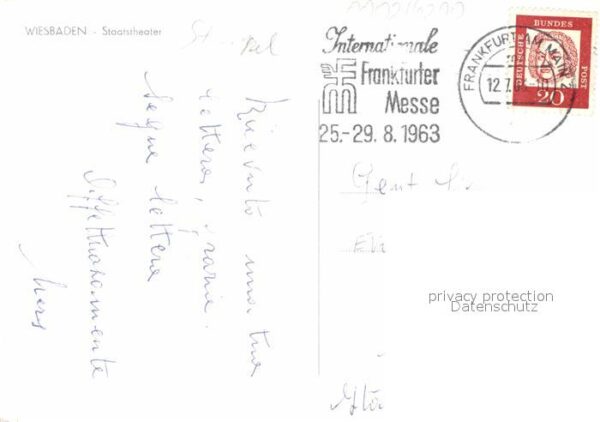 WIESBADEN - Staatstheater
Ricevuto una tua
lettera, grazie.
Segue lettera
Affettuosamente
Internationale
Frankfurter
Messe
25.-29. 8. 1963
FRANKFURT AM MAIN 2
12.7.
DEUTSCHE BUNDES POST
20
Gent
privacy protection
Datenschutz